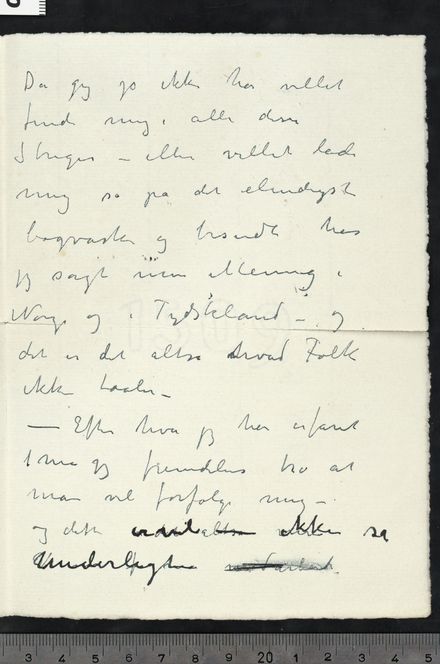 Da jeg jo ikke har villet
finde mig i alle disse
– eller villet lade
mig så på det elendigste
bagvaske og har
jeg sagt min Mening i
Norge og i Tydskland – og
det er det altså hvad Folk
ikke taaler –
– Efter hva jeg har erfaret
må jeg fremdeles tro at
man vil forfølge mig –
og dette ikke så
Underligt